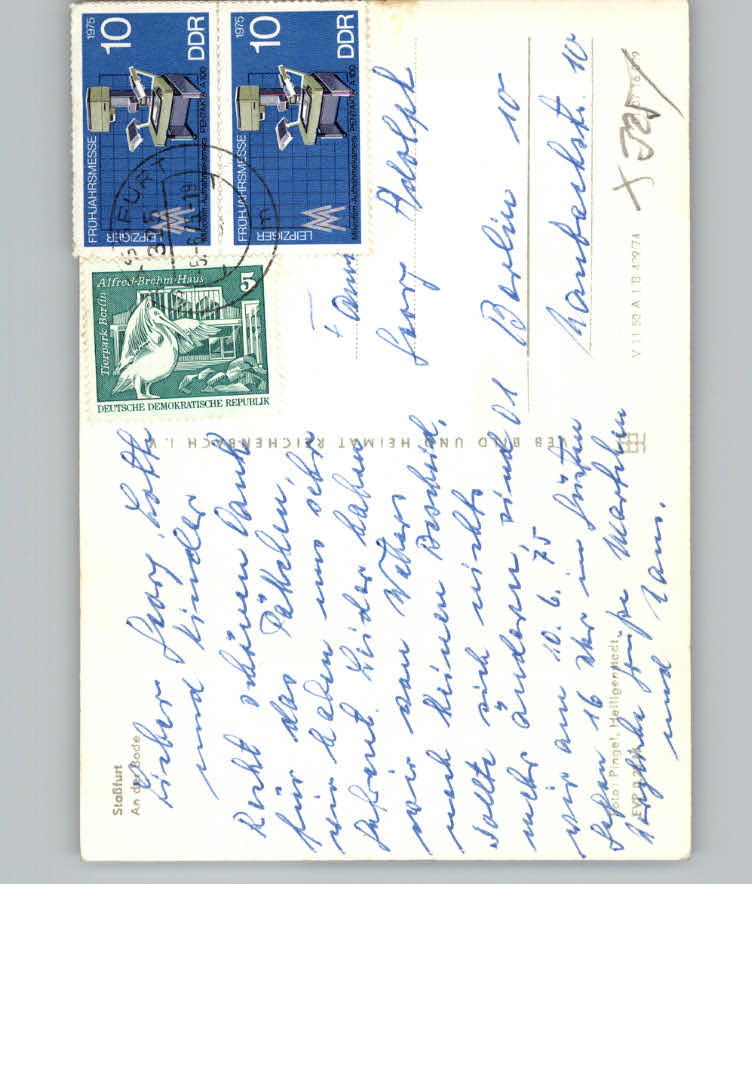 Staßfurt
An der Bode
Lieber Georg, Lotte
und Kinder
Recht schönen Dank
für das Päckchen,
wir haben uns sehr
gefreut. Leider haben
wir von Webers
noch keinen Bescheid,
sollte sich nichts
mehr ändern, sind
wir am 10. 6. 75
gegen 16 Uhr in
Herzliche Grüße
und Hans.
Foto: Pingel, Heiligenstadt
VEB BILD UND HEIMAT REICHENBACH i. V.
V 11 50 A 1 B 429/74
1975
10
DDR
LEIPZIGER
FRÜHJAHRSMESSE
Mikrofilm-Aufnahmekamera PENTAKTA A 100
1975
10
DDR
LEIPZIGER
FRÜHJAHRSMESSE
Mikrofilm-Aufnahmekamera PENTAKTA A 100
Tierpark Berlin
Alfred-Brehm-Haus
5
DEUTSCHE DEMOKRATISCHE REPUBLIK
325
Georg Adolph
Berlin 10